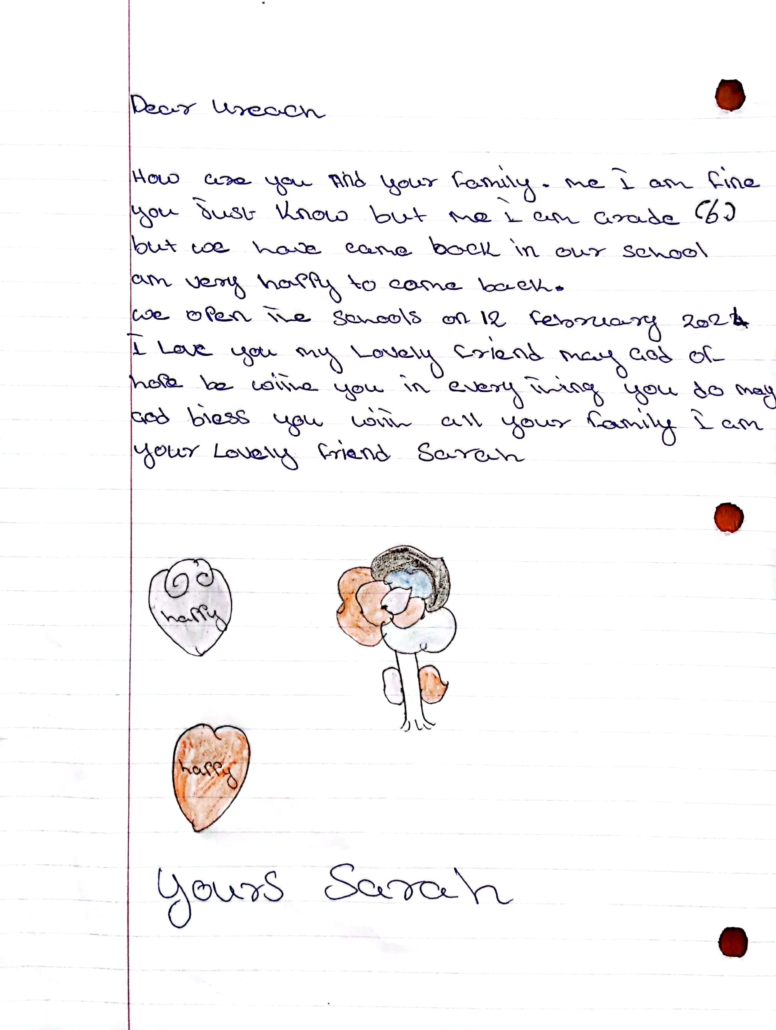 Dear Ureach
How are you And your family. me I am fine
you Just Know but me I am Grade (6)
but we have came back in our school
am very happy to came back.
we open the schools on 12 february 2024
I Love you my Lovely friend may God of
hope be withe you in every thing you do may
God bless you with all your family I am
your Lovely friend Sarah
happy
happy
Yours Sarah